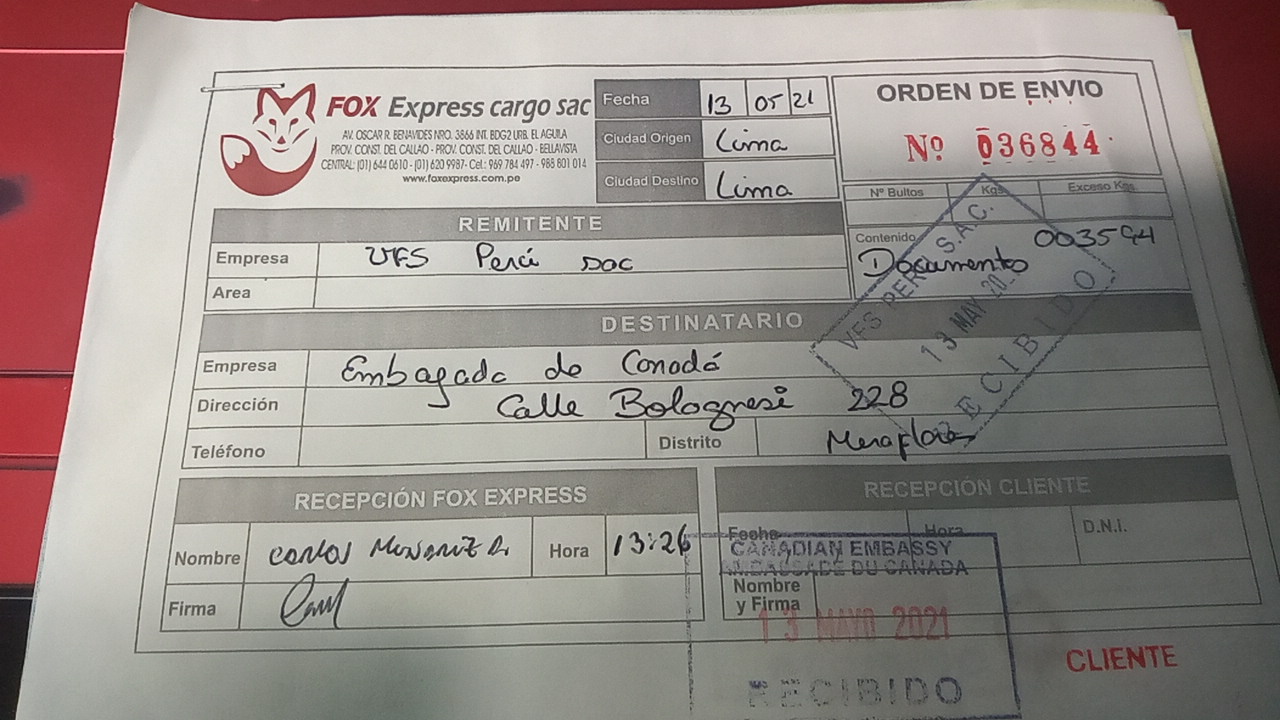 FOX Express cargo sac
AV. OSCAR R. BENAVIDES NRO. 3866 INT. BDG2 URB. EL AGUILA
PROV. CONST. DEL CALLAO - PROV. CONST. DEL CALLAO - BELLAVISTA
CENTRAL: (01) 644 0610 - (01) 620 9987- Cel.: 969 784 497 - 988 801 014
www.foxexpress.com.pe
Fecha 13 05 21
Ciudad Origen Lima
Ciudad Destino Lima
ORDEN DE ENVIO
Nº 036844
Nº Bultos Kgs. Exceso Kgs.
Contenido 003594
Documento
REMITENTE
Empresa VFS Perú
Area
VFS PERU S.A.C.
13 MAY 20
RECIBIDO
DESTINATARIO
Empresa Embagada de Canadá
Dirección Calle Bolognesi 228
Teléfono Distrito Meraflores
RECEPCIÓN FOX EXPRESS
Nombre Carlos Hora 13:26
Firma
RECEPCIÓN CLIENTE
Fecha Hora D.N.I.
Nombre
y Firma
CANADIAN EMBASSY
AMBASSADE DU CANADA
13 MAYO 2021
RECIBIDO
CLIENTE